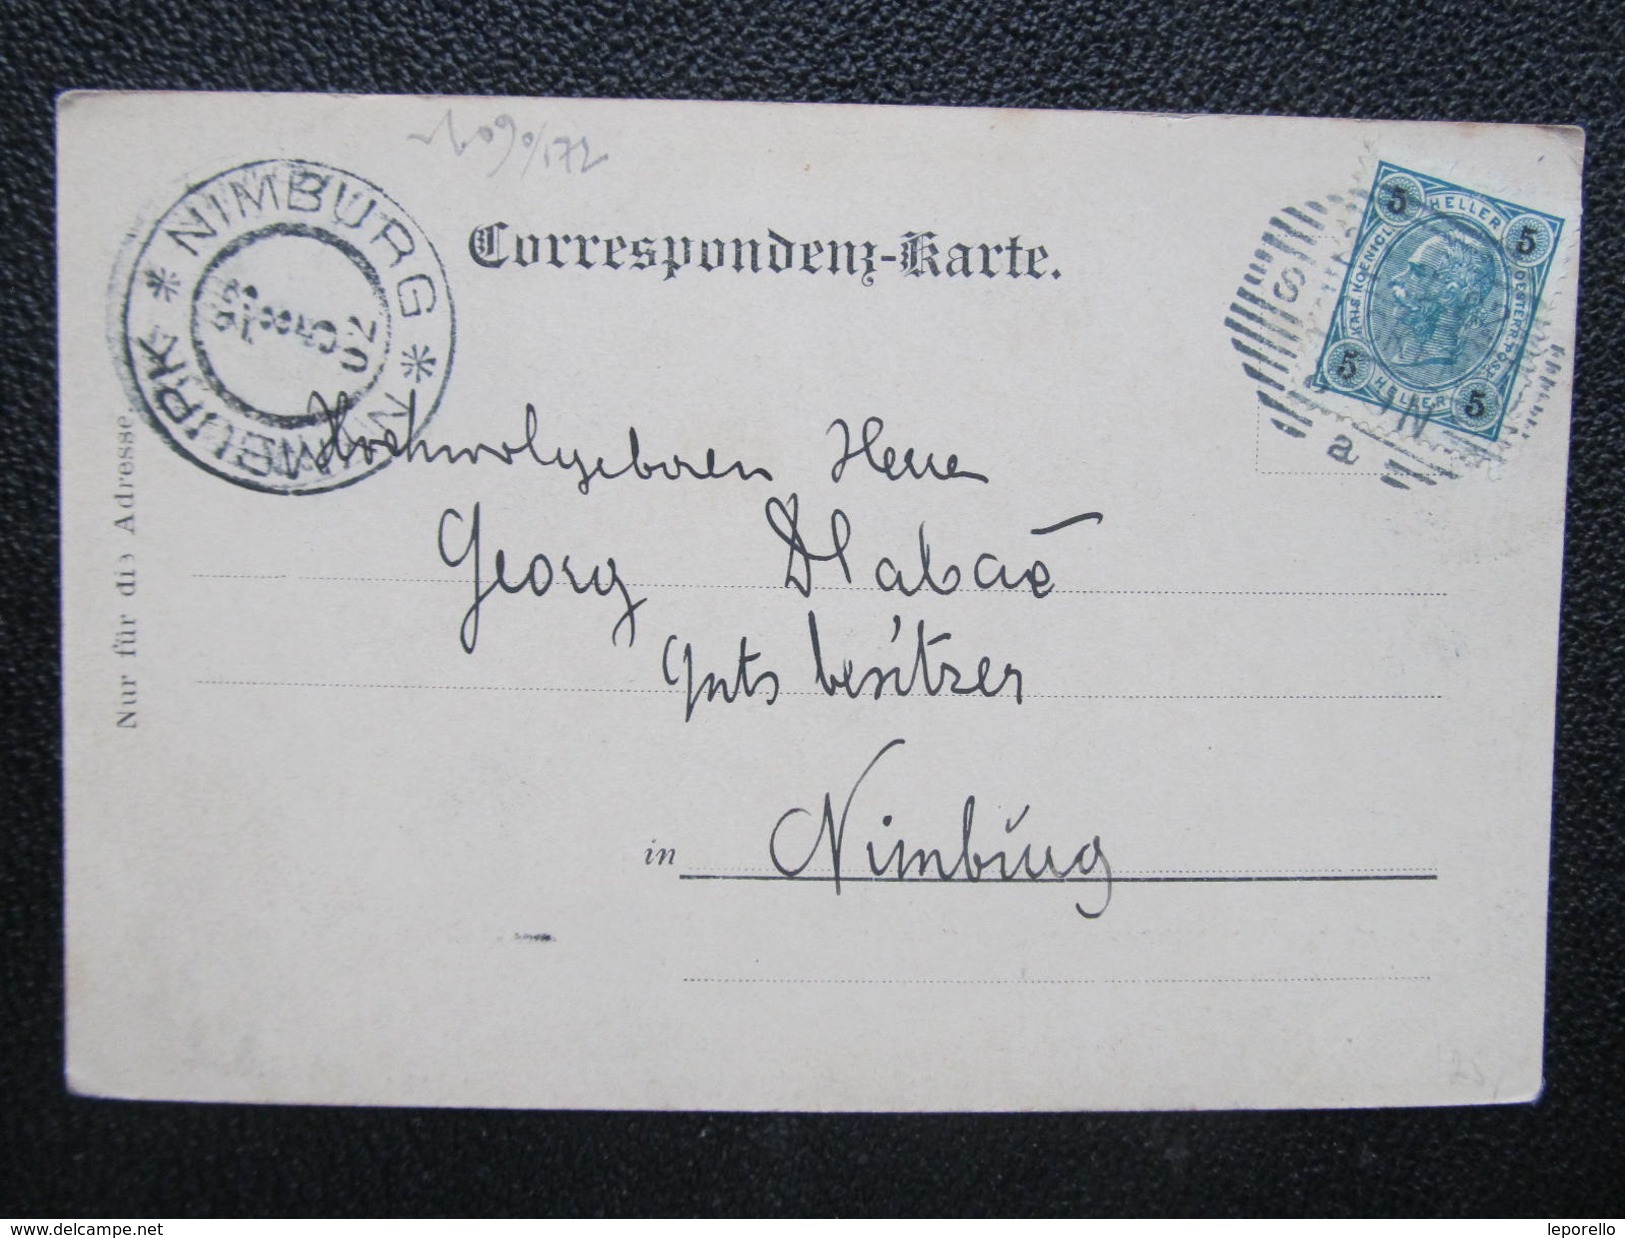 Correspondenz-Karte.
NIMBURG * NYMBURK *
5 HELLER 5
KAIS. KOENIGL. OESTERR. POST
5 HELLER 5
a
Nur für die Adresse.
Hochwolgeboren Herrn
Georg Dlabač
Guts besitzer
in Nimburg
www.delcampe.net
leporello